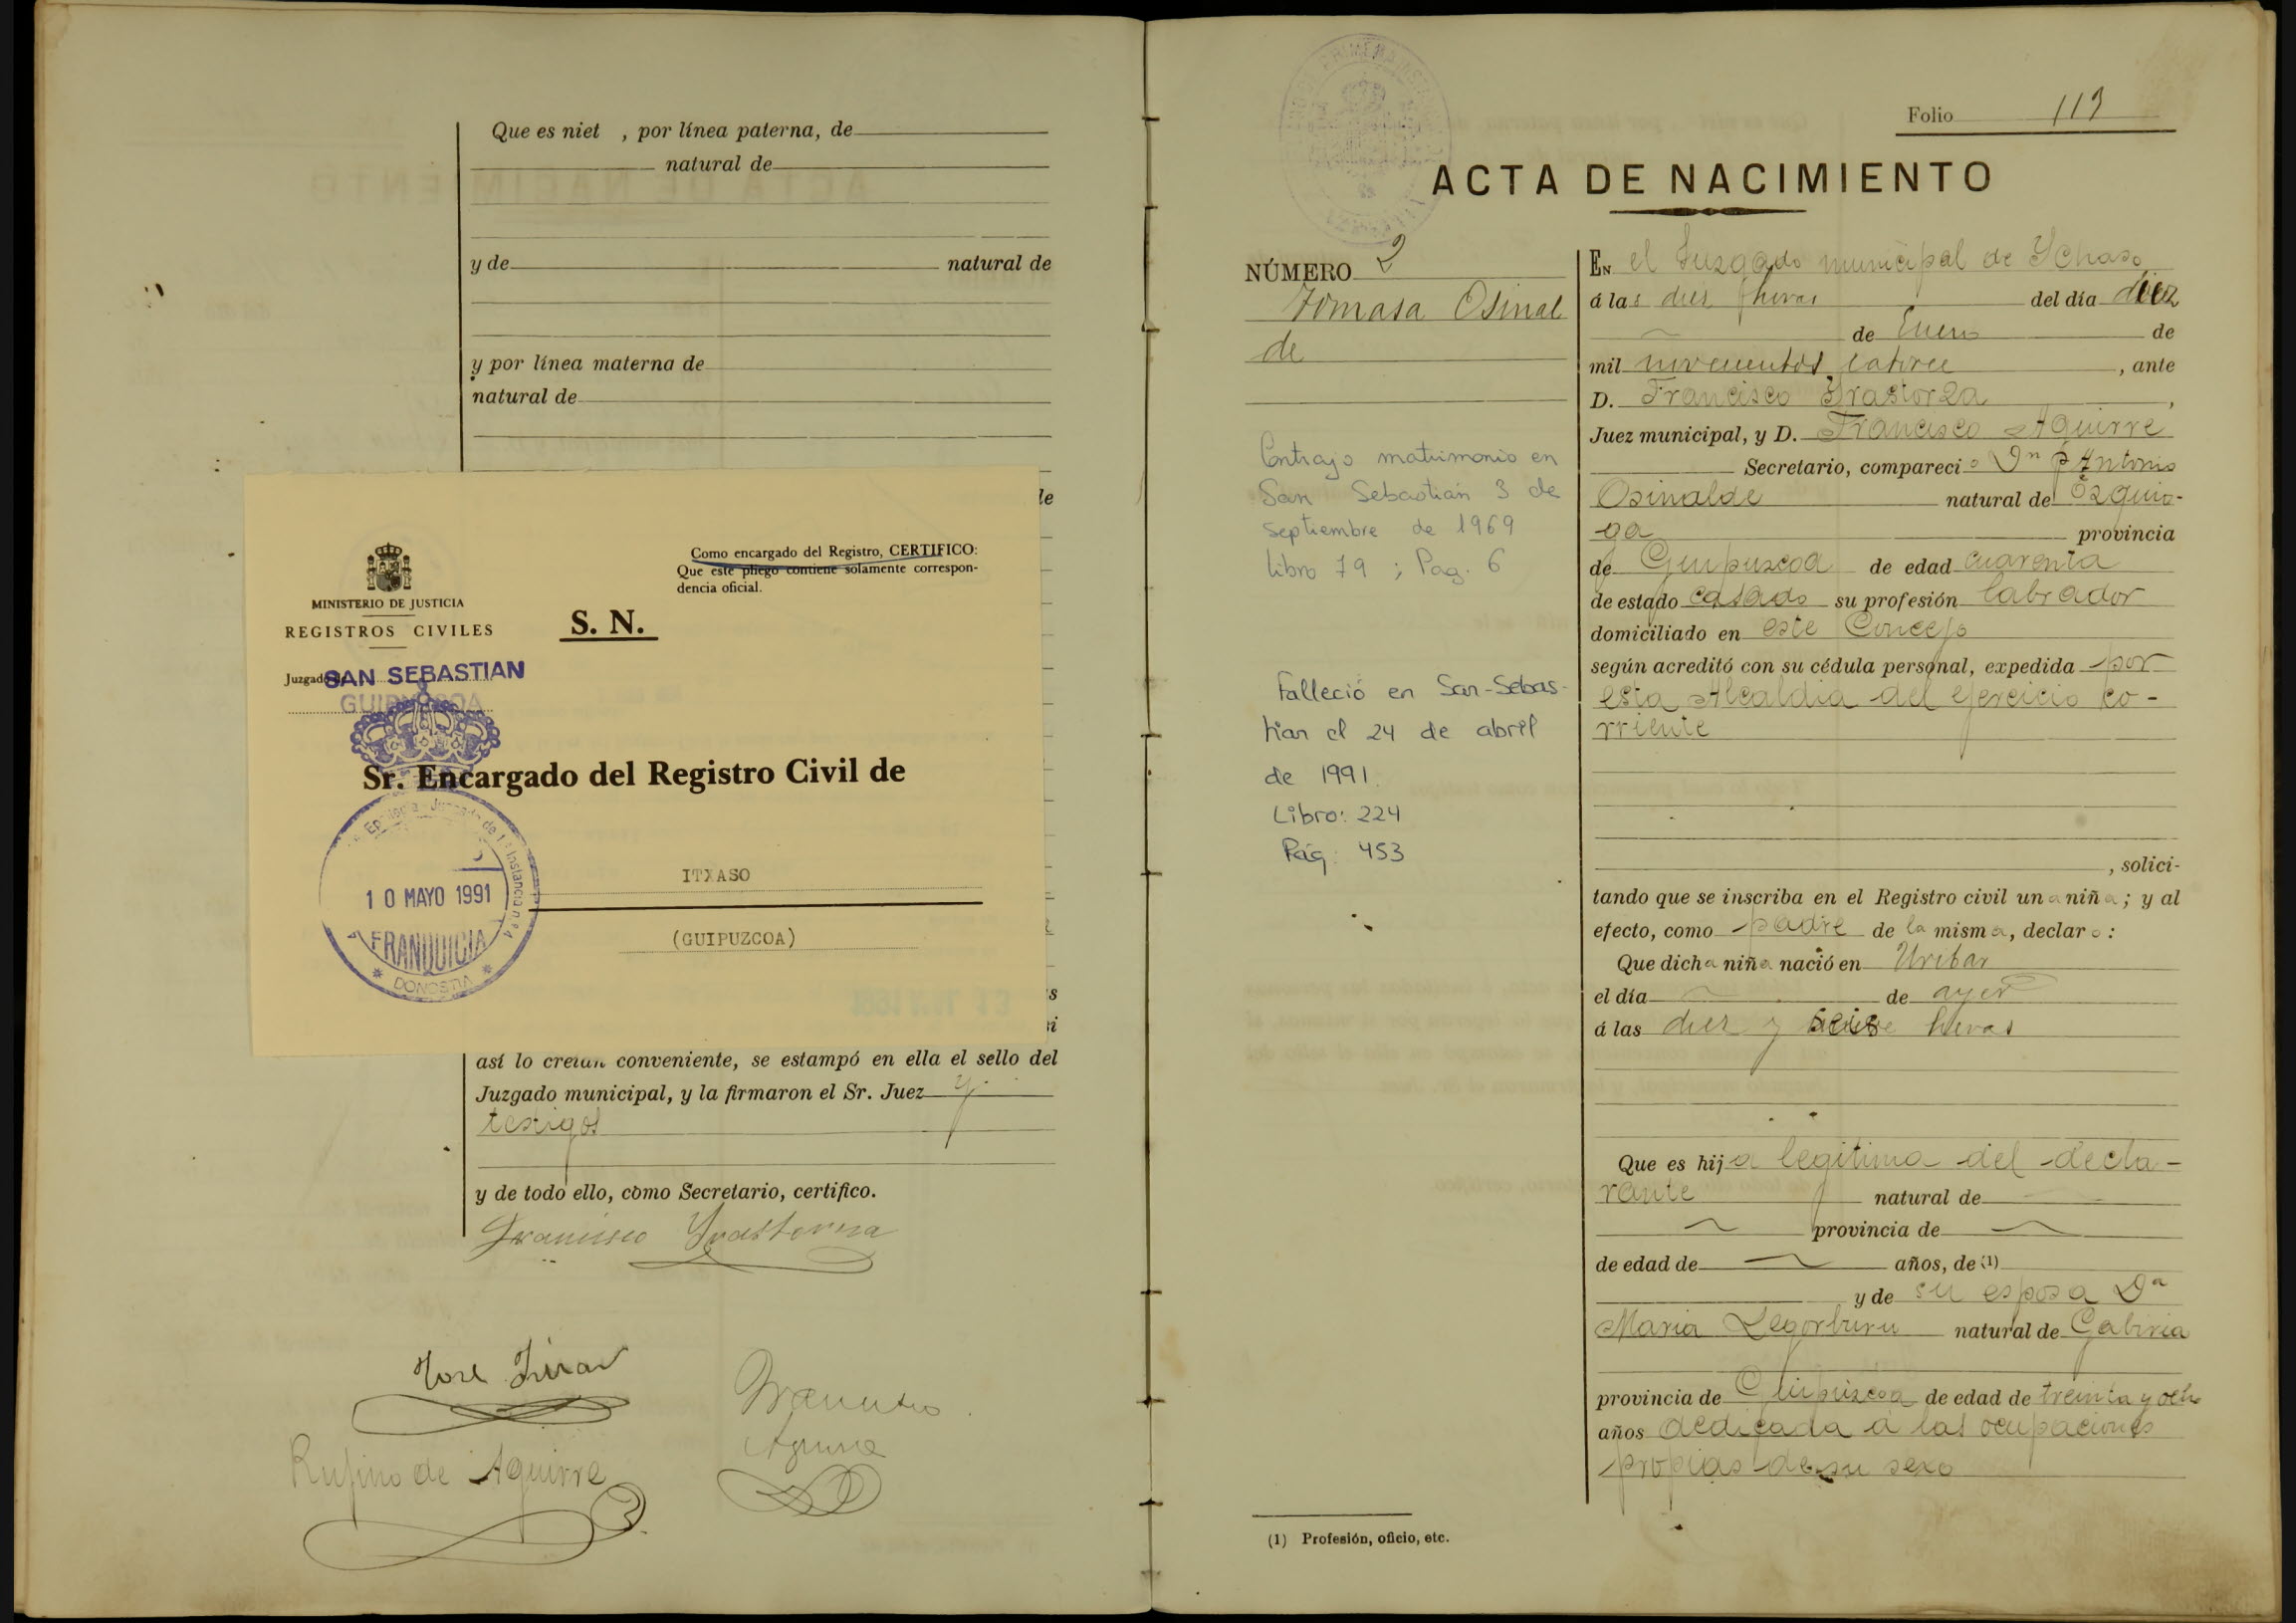 Que es niet , por línea paterna, de
natural de
y de natural de
y por línea materna de
natural de
le
MINISTERIO DE JUSTICIA
REGISTROS CIVILES
Como encargado del Registro, CERTIFICO:
Que este pliego contiene solamente correspon-
dencia oficial.
S. N.
SAN SEBASTIAN
GUIPUZCOA
Sr. Encargado del Registro Civil de
ITXASO
(GUIPUZCOA)
10 MAYO 1991
FRANQUICIA
DONOSTIA
s
i
así lo creían conveniente, se estampó en ella el sello del
Juzgado municipal, y la firmaron el Sr. Juez y
testigos
y de todo ello, como Secretario, certifico.
Francisco Yrastorza
José
Francisco
Aguirre
Rufino de Aguirre
Folio 113
ACTA DE NACIMIENTO
NÚMERO 2
Tomasa Osinal
de
Contrajo matrimonio en
San Sebastián 3 de
septiembre de 1969
libro 79 ; Pag. 6
Falleció en San-Sebas-
tian el 24 de abril
de 1991.
Libro: 224
Pág: 453
EN el Juzgado municipal de Ychaso
á las diez horas del día diez
de Enero de
mil novecientos catorce, ante
D. Francisco Yrastorza,
Juez municipal, y D. Francisco Aguirre
Secretario, compareció Dn Antonio
Osinalde natural de Ezquio-
ga provincia
de Guipuzcoa de edad cuarenta
de estado casado su profesión labrador
domiciliado en este Concejo
según acreditó con su cédula personal, expedida por
esta Alcaldia del ejercicio co-
rriente
, solici-
tando que se inscriba en el Registro civil una niña; y al
efecto, como padre de la misma, declaro:
Que dicha niña nació en Uribar
el día de ayer
á las diez y horas
Que es hija legitima del decla-
rante natural de
provincia de
de edad de años, de (1)
y de su esposa Da
Maria Legorburu natural de Gabiria
provincia de Guipuzcoa de edad de treinta y ocho
años dedicada a las ocupaciones
propias de su sexo
(1) Profesión, oficio, etc.